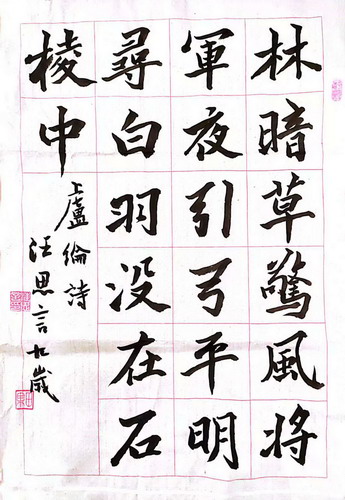 林暗草驚風將
軍夜引弓平明
尋白羽没在石
棱中
上盧綸詩
汪思言九歲